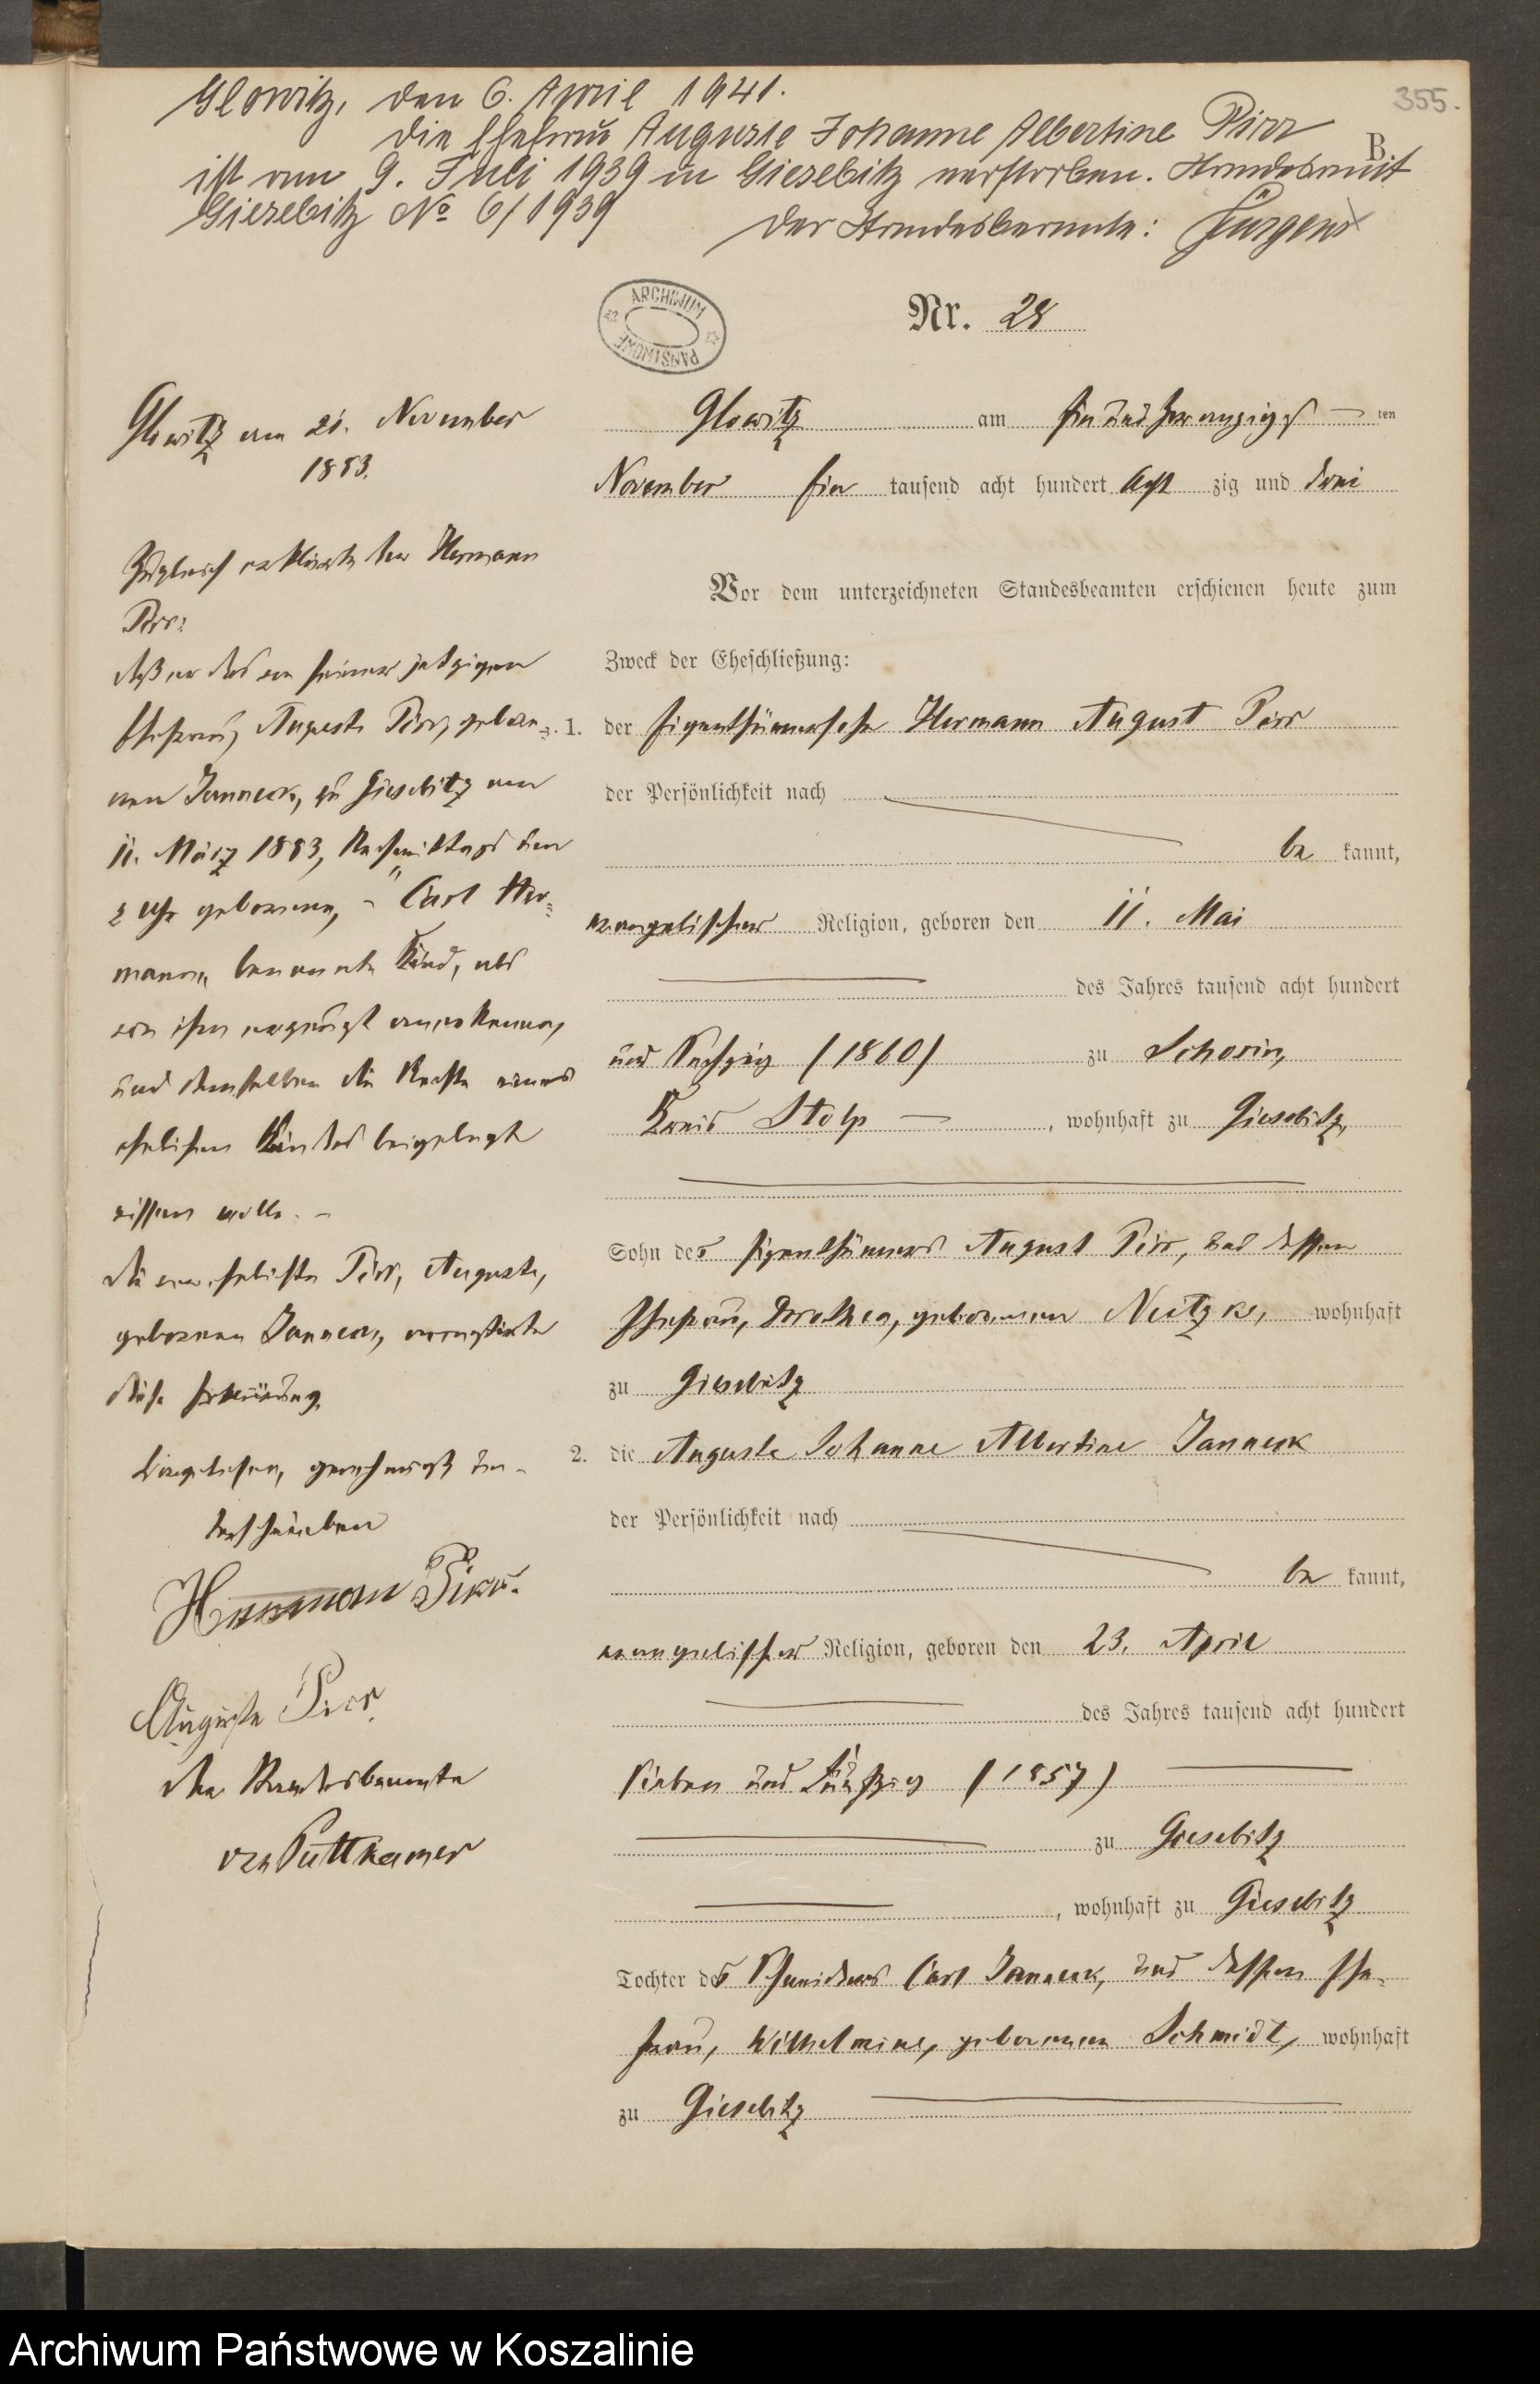 355.
Glowitz, den 6. April 1941.
Die Ehefrau Auguste Johanne Albertine Pirr
B.
ist am 9. Juli 1939 in Giesebitz verstorben. Standesamt
Giesebitz No 6/1939
Der Standesbeamte: Jürgens
ARCHIWUM PAŃSTWOWE
Nr. 28
Glowitz am 21. November
1883.
Zugleich erklärte der Hermann
Pirr:
daß er das von seiner jetzigen
Ehefrau, Auguste Pirr, gebore-
nen Janneck, zu Giesebitz am
11. März 1883, Nachmittags um
2 Uhr geborene, - "Carl Her-
mann" benannte Kind, als
von ihm erzeugt anerkenne,
und demselben die Rechte eines
ehelichen Kindes beigelegt
wissen wolle. -
Die verehelichte Pirr, Auguste,
geborenen Janneck,
diese Erklärung.
Vorgelesen, genehmigt un-
terschrieben
Hermann Pirr.
Auguste Pirr.
Der Standesbeamte
von Puttkamer
Glowitz am ein und zwanzigst ten
November Ein tausend acht hundert acht zig und drei
Vor dem unterzeichneten Standesbeamten erschienen heute zum
Zweck der Eheschließung:
1. der Eigenthümersohn Hermann August Pirr
der Persönlichkeit nach
be kannt,
evangelischer Religion, geboren den 11. Mai
des Jahres tausend acht hundert
und Sechzig (1860) zu Schorin,
Kreis Stolp, wohnhaft zu Giesebitz,
Sohn des Eigenthümers August Pirr, und dessen
Ehefrau, Dorothea, geborenen Neitzke, wohnhaft
zu Giesebitz
2. die Auguste Johanne Albertine Janneck
der Persönlichkeit nach
be kannt,
evangelischer Religion, geboren den 23. April
des Jahres tausend acht hundert
sieben und fünfzig (1857)
zu Giesebitz
, wohnhaft zu Giesebitz
Tochter des Schneiders Carl Janneck, und dessen Ehe-
frau, Wilhelmine, geborenen Schmidt, wohnhaft
zu Giesebitz
Archiwum Państwowe w Koszalinie